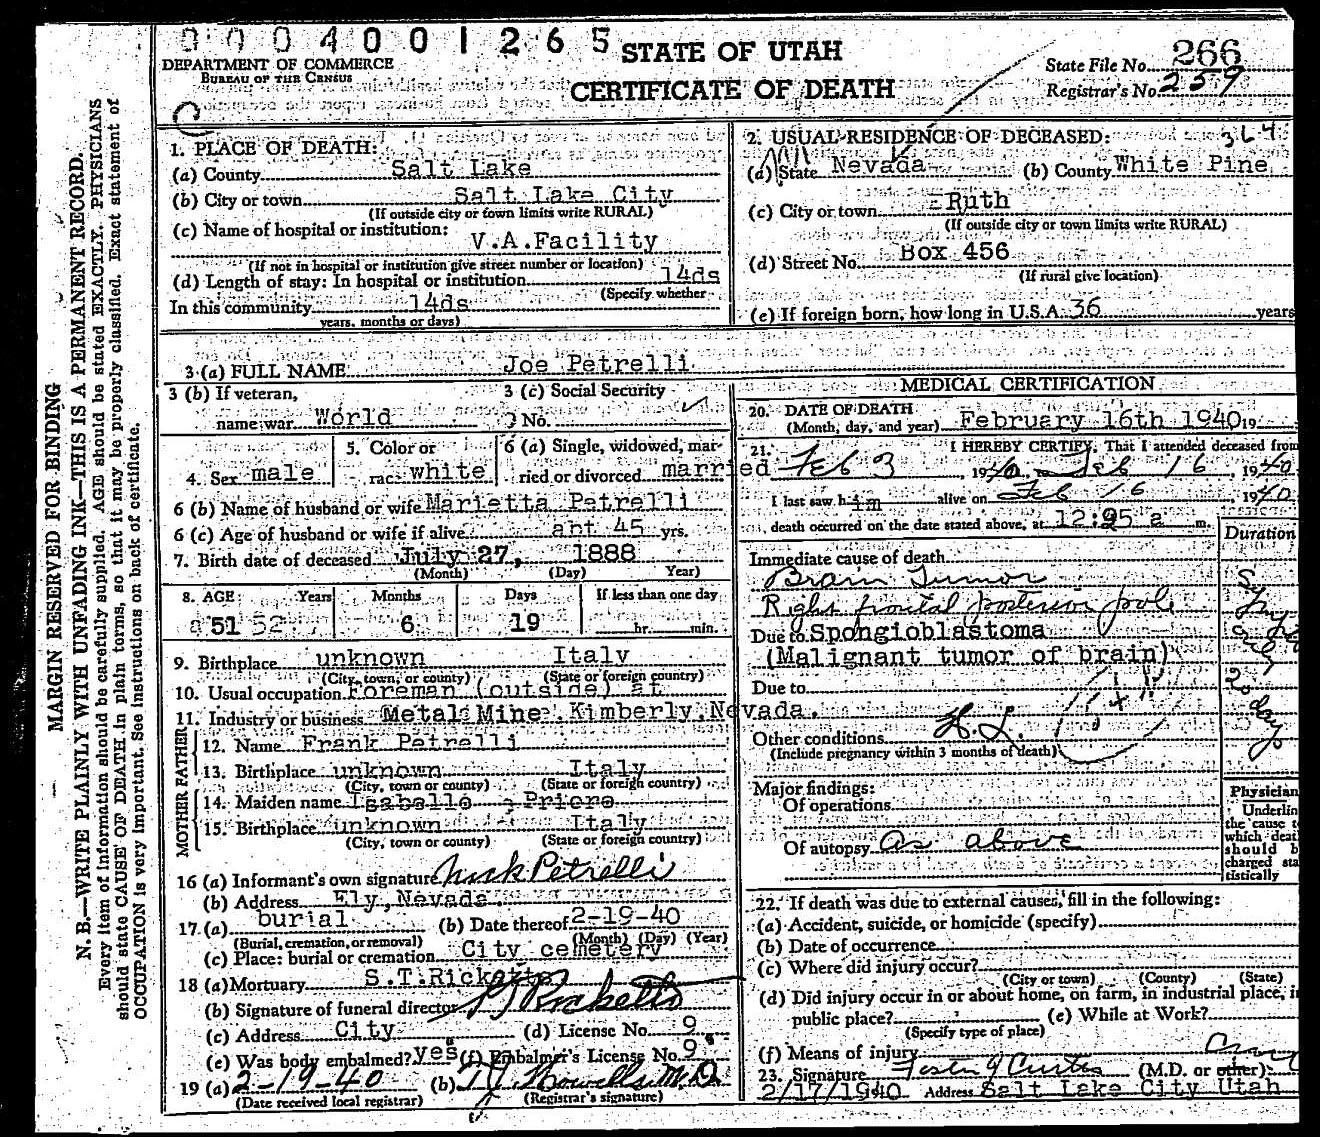 0004001265
STATE OF UTAH
CERTIFICATE OF DEATH
DEPARTMENT OF COMMERCE
BUREAU OF THE CENSUS
State File No. 266
Registrar's No. 259
MARGIN RESERVED FOR BINDING
N. B.—WRITE PLAINLY WITH UNFADING INK—THIS IS A PERMANENT RECORD.
Every item of information should be carefully supplied. AGE should be stated EXACTLY. PHYSICIANS
should state CAUSE OF DEATH in plain terms, so that it may be properly classified. Exact statement of
OCCUPATION is very important. See instructions on back of certificate.
1. PLACE OF DEATH:
(a) County Salt Lake
(b) City or town Salt Lake City
(If outside city or town limits write RURAL)
(c) Name of hospital or institution:
V.A.Facility
(If not in hospital or institution give street number or location)
(d) Length of stay: In hospital or institution 14ds
(Specify whether
In this community 14ds
years, months or days)
2. USUAL RESIDENCE OF DECEASED: 364
(a) State Nevada (b) County White Pine
(c) City or town Ruth
(If outside city or town limits write RURAL)
(d) Street No. Box 456
(If rural give location)
(e) If foreign born, how long in U.S.A. 36 years
3 (a) FULL NAME Joe Petrelli
3 (b) If veteran,
name war World
3 (c) Social Security
No.
4. Sex male
5. Color or
race white
6 (a) Single, widowed, mar-
ried or divorced married
6 (b) Name of husband or wife Marietta Petrelli
6 (c) Age of husband or wife if alive 45 yrs.
7. Birth date of deceased July 27, 1888
(Month) (Day) Year)
8. AGE: Years Months Days If less than one day
51 52 6 19 hr. min.
9. Birthplace unknown Italy
(City, town, or county) (State or foreign country)
10. Usual occupation Foreman (outside) at
11. Industry or business Metal Mine Kimberly, Nevada.
FATHER
12. Name Frank Petrelli
13. Birthplace unknown Italy
(City, town or county) (State or foreign country)
MOTHER
14. Maiden name Isabelle Priore
15. Birthplace unknown Italy
(City, town or county) (State or foreign country)
16 (a) Informant's own signature Nick Petrelli
(b) Address Ely, Nevada.
17. (a) burial (b) Date thereof 2-19-40
(Burial, cremation, or removal) (Month) (Day) (Year)
(c) Place: burial or cremation City cemetery
18 (a) Mortuary S.T.Ricketts
(b) Signature of funeral director Ricketts
(c) Address City (d) License No. 9
(e) Was body embalmed? yes (f) Embalmer's License No. 9
19 (a) 2-19-40 (b) T J Howells M.D.
(Date received local registrar) (Registrar's signature)
MEDICAL CERTIFICATION
20. DATE OF DEATH
(Month, day, and year) February 16th 1940 19
21. I HEREBY CERTIFY, That I attended deceased from
Feb 3, 1940 Feb 16, 1940
I last saw him alive on Feb 16, 1940
death occurred on the date stated above, at 12:25 a m.
Duration
Immediate cause of death
Brain Tumor
Right frontal posterior pole
Due to Spongioblastoma
(Malignant tumor of brain)
Due to
20 days
Other conditions H.L.
(Include pregnancy within 3 months of death)
Major findings:
Of operations
Of autopsy As above
Physician
Underlin
the cause t
which deat
should b
charged sta
tistically
22. If death was due to external causes, fill in the following:
(a) Accident, suicide, or homicide (specify)
(b) Date of occurrence
(c) Where did injury occur?
(City or town) (County) (State)
(d) Did injury occur in or about home, on farm, in industrial place, i
public place? (e) While at Work?
(Specify type of place)
(f) Means of injury
23. Signature Curtis (M.D. or other)
2/17/1940 Address Salt Lake City Utah